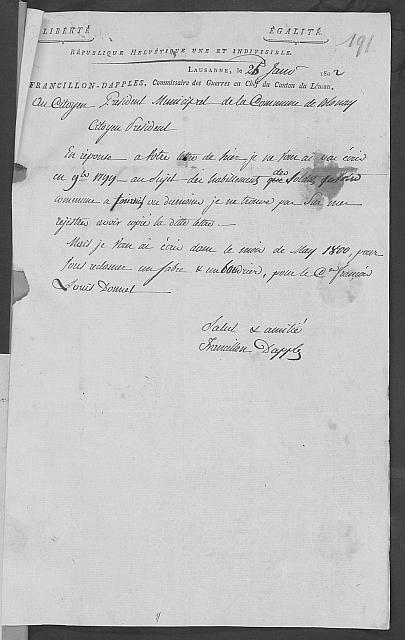 LIBERTÉ ÉGALITÉ.
191
RÉPUBLIQUE HELVÉTIQUE UNE ET INDIVISIBLE.
LAUSANNE, le 26 Janv 1802
FRANCILLON-DAPPLES, Commissaire des Guerres en Chef du Canton du Léman,
Au Citoyen Président Municipal de la Commune de Blonay
Citoyen Président
En réponse a votre lettre de hier je ne vous ai pas écrit
en 9bre 1799 au sujet des habillements des Soldats que votre
commune a fournis ou du moins je ne trouve pas sur mes
registres avoir copié la ditte lettre.
Mais je vous ai écrit dans le mois de May 1800, pour
vous reclamer un sabre & un boudrier, pour le
Louis Donnet
Salut & amitié
Francillon Dapples